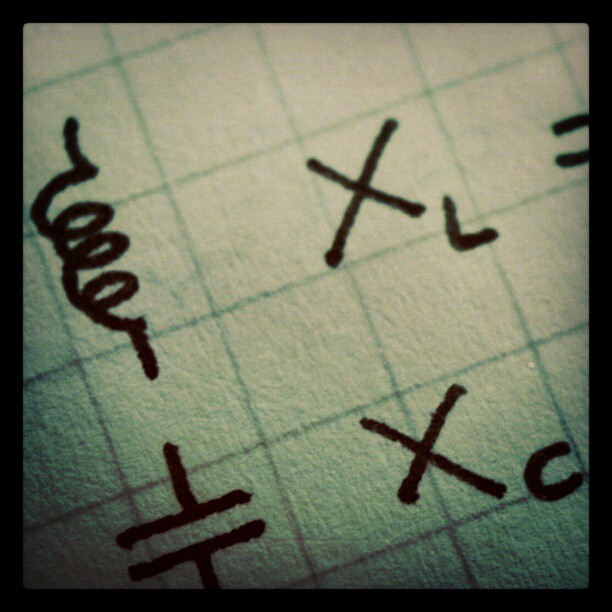 X_L =
X_C